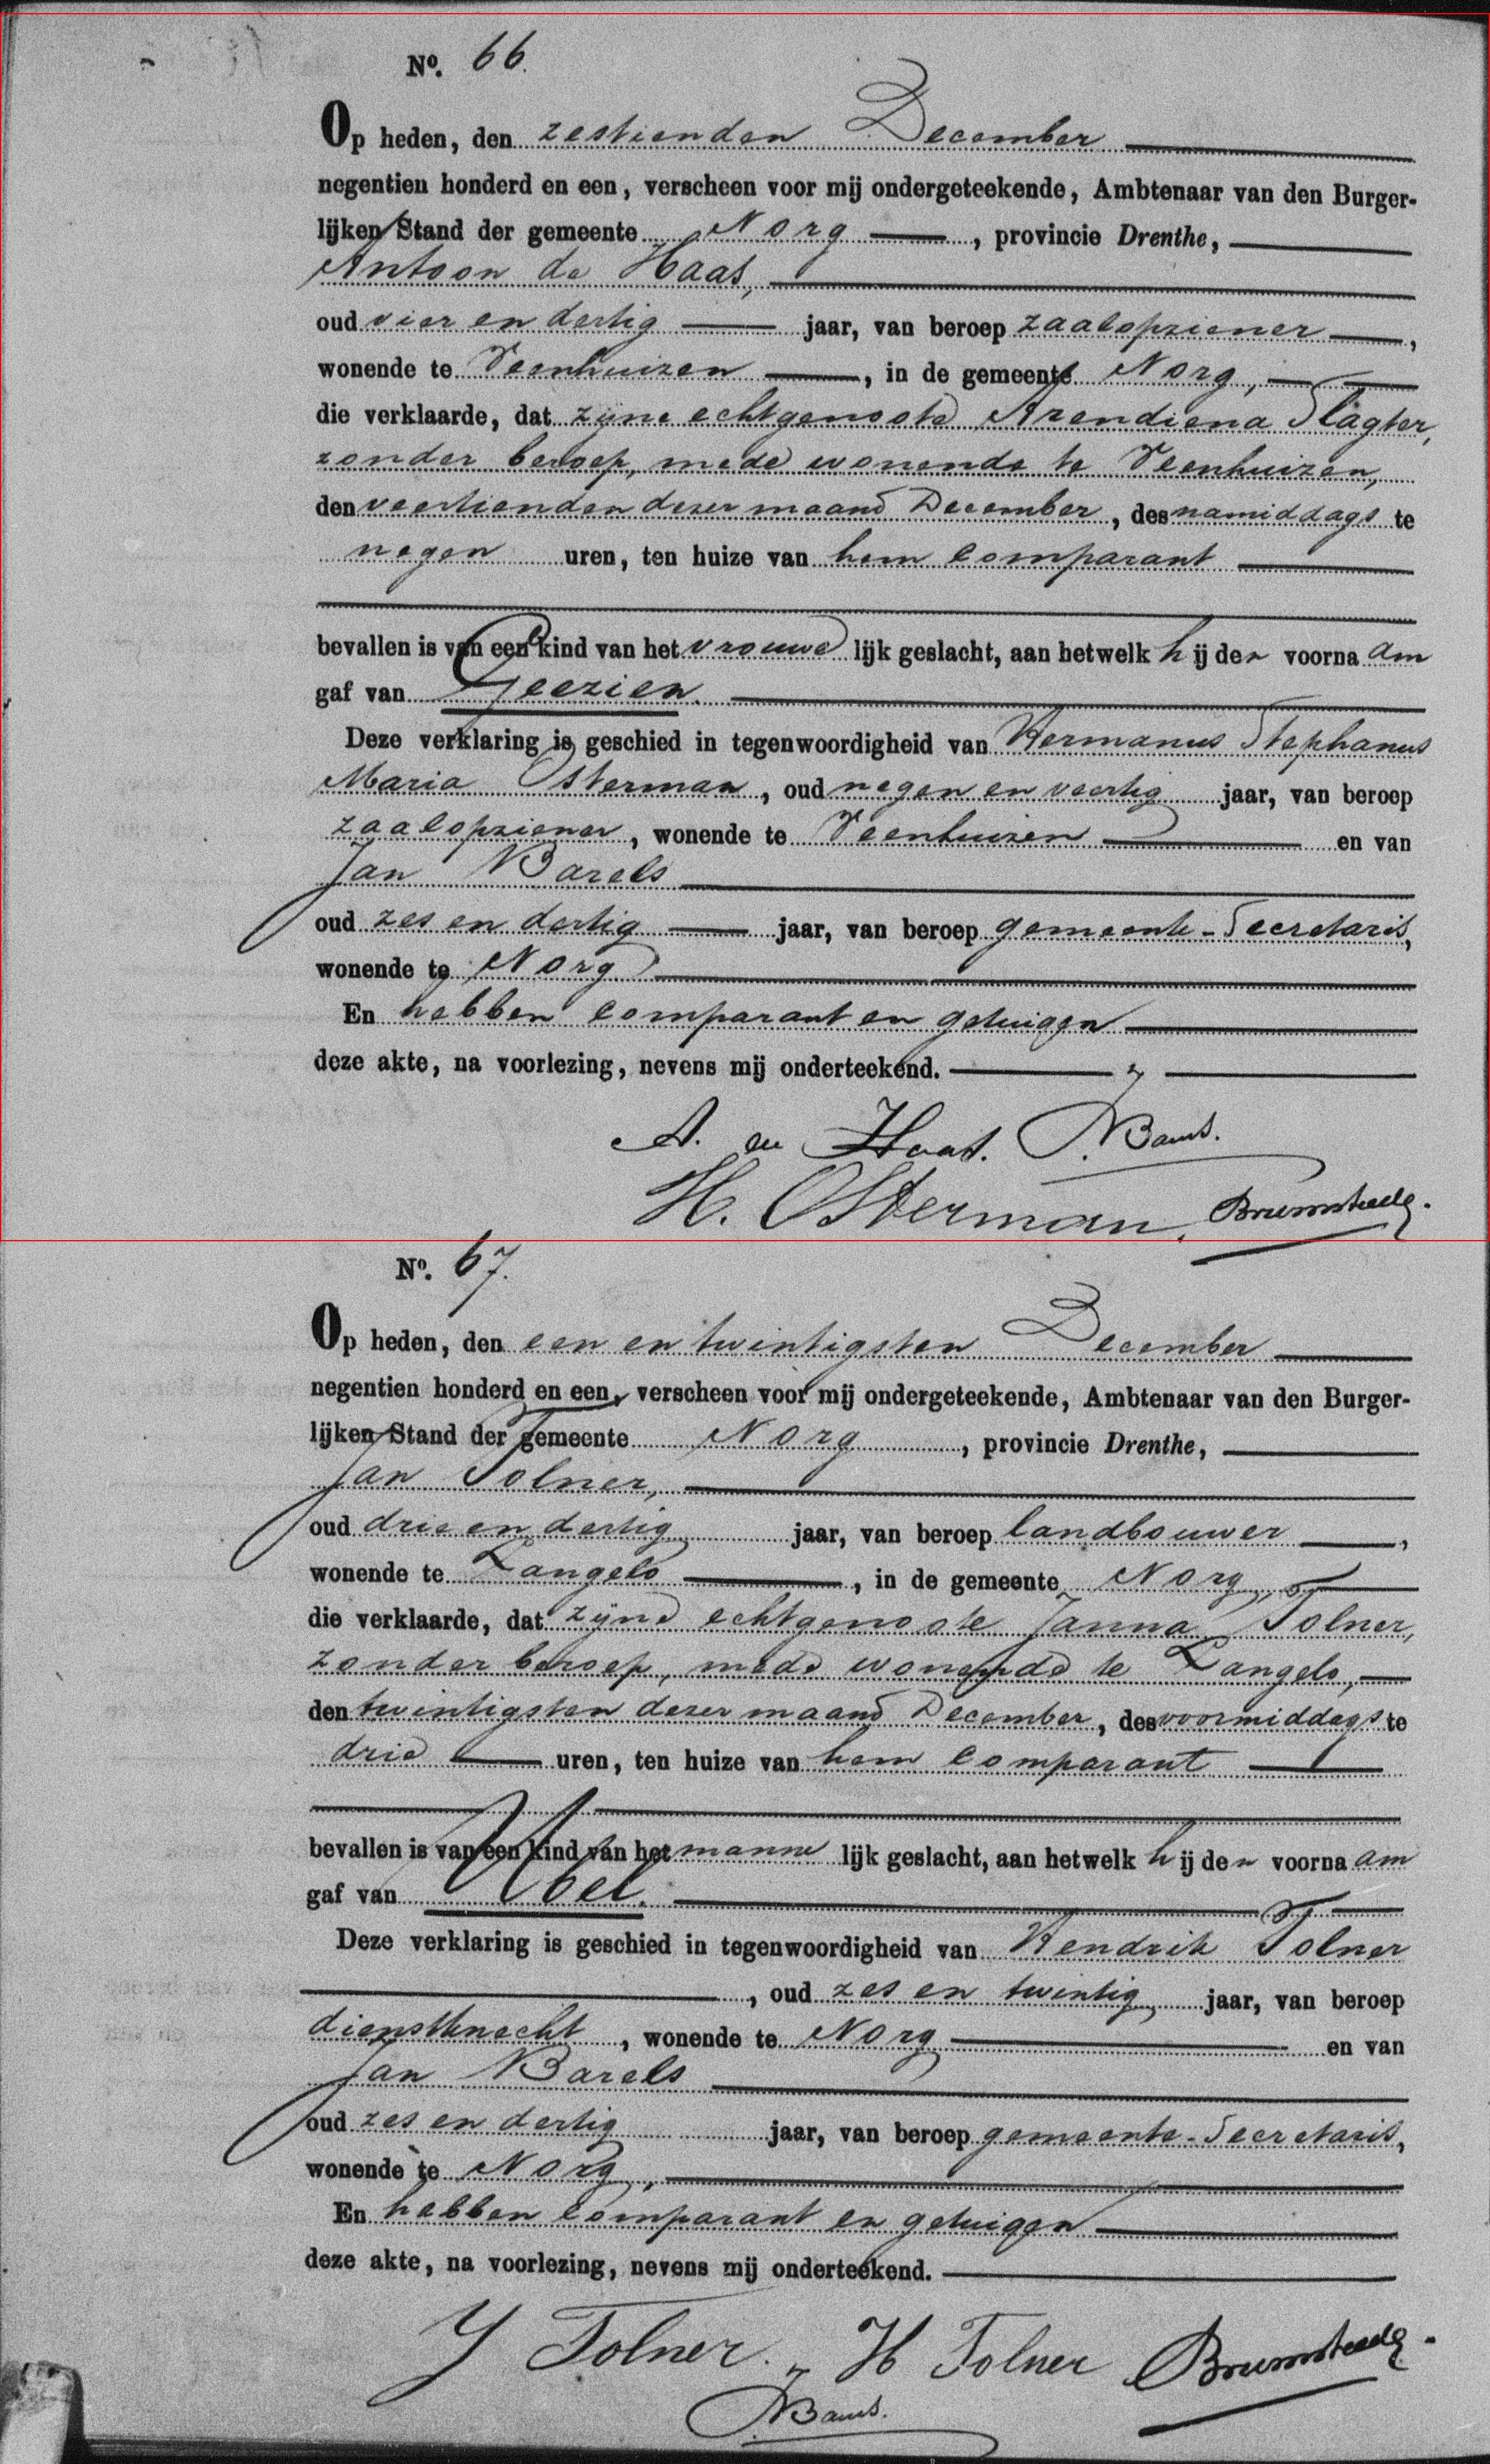 Nº. 66.
Op heden, den zestienden December
negentien honderd en een, verscheen voor mij ondergeteekende, Ambtenaar van den Burger-
lijken Stand der gemeente Norg, provincie Drenthe,
Antoon de Haas,
oud vier en dertig jaar, van beroep zaalopziener,
wonende te Veenhuizen, in de gemeente Norg,
die verklaarde, dat zijne echtgenoote Arendiena Slagter,
zonder beroep, mede wonende te Veenhuizen,
den veertienden dezer maand December, des namiddags te
negen uren, ten huize van hem comparant
bevallen is van een kind van het vrouwelijk geslacht, aan hetwelk hij den voornaam
gaf van Geezien.
Deze verklaring is geschied in tegenwoordigheid van Hermanus Stephanus
Maria Osterman, oud negen en veertig jaar, van beroep
zaalopziener, wonende te Veenhuizen en van
Jan Barels
oud zes en dertig jaar, van beroep gemeente-Secretaris,
wonende te Norg
En hebben comparant en getuigen
deze akte, na voorlezing, nevens mij onderteekend.
A. de Haas. J. Barels.
H. Osterman.
Nº. 67.
Op heden, den een en twintigsten December
negentien honderd en een, verscheen voor mij ondergeteekende, Ambtenaar van den Burger-
lijken Stand der gemeente Norg, provincie Drenthe,
Jan Tolner,
oud drie en dertig jaar, van beroep landbouwer,
wonende te Langelo, in de gemeente Norg,
die verklaarde, dat zijne echtgenoote Janna Tolner,
zonder beroep, mede wonende te Langelo,
den twintigsten dezer maand December, des voormiddags te
drie uren, ten huize van hem comparant
bevallen is van een kind van het mannelijk geslacht, aan hetwelk hij den voornaam
gaf van Ubel.
Deze verklaring is geschied in tegenwoordigheid van Hendrik Tolner
, oud zes en twintig, jaar, van beroep
dienstknecht, wonende te Norg en van
Jan Barels
oud zes en dertig jaar, van beroep gemeente-Secretaris,
wonende te Norg,
En hebben comparant en getuigen
deze akte, na voorlezing, nevens mij onderteekend.
J Tolner. H Tolner
J. Barels.